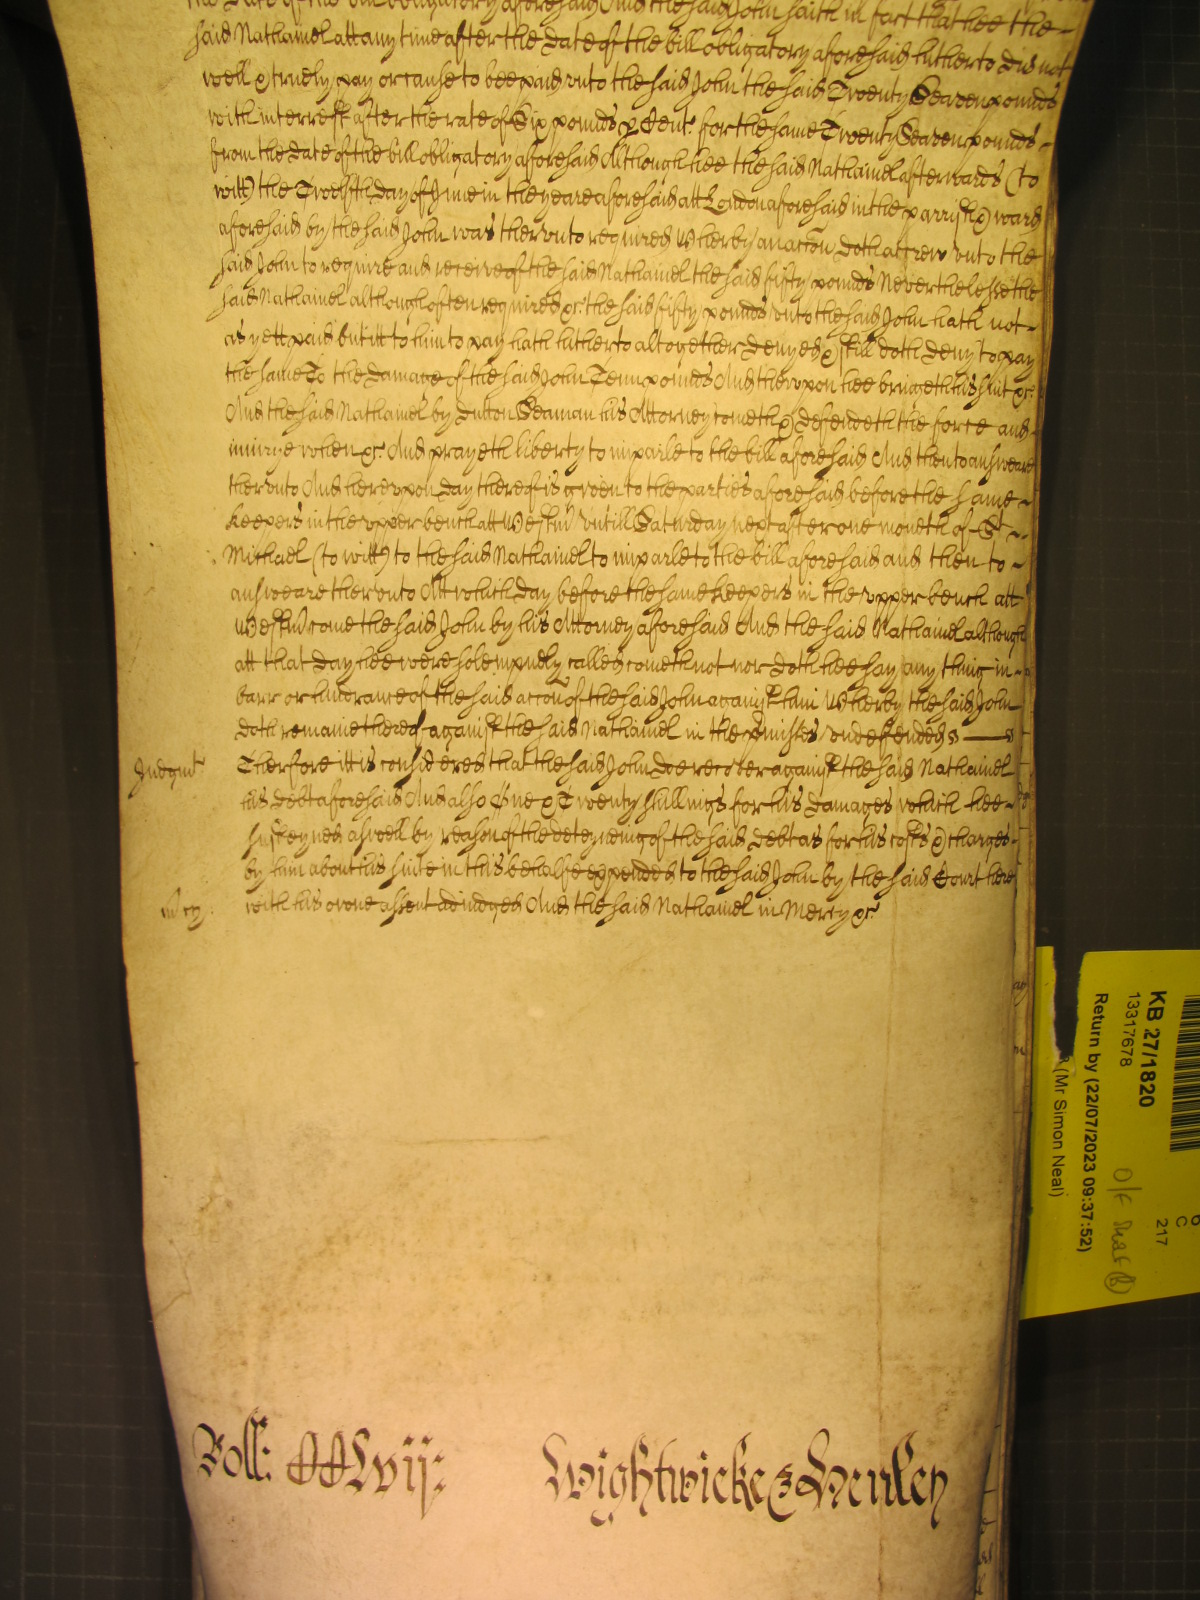 the Date of the bill obligatory aforesaid And the said John saith in fact that hee the
said Nathaniel att any time after the date of the bill obligatory aforesaid hitherto did not
well & truely pay or cause to bee paid unto the said John the said Twenty Seaven pounds
with interrest after the rate of Six pounds p Cent. for the same Twenty Seaven pounds
from the date of the bill obligatory aforesaid Although hee the said Nathaniel afterwards (to
witt) the Twelfth day of June in the yeare aforesaid att London aforesaid in the parrish & ward
aforesaid by the said John was thervnto required Wherby an accon doth accrew vnto the
said John to require and receive of the said Nathaniel the said fifty pounds Neverthelesse the
said Nathaniel although often required &c. the said fifty pounds vnto the said John hath not
as yett paid but itt to him to pay hath hitherto altogether denyed & still doth deny to pay
the same To the damage of the said John Tenn pounds And thervpon hee bringeth his suit &c.
And the said Nathaniel by Dutton Seaman his Attorney cometh & defendeth the force and
iniurie when &c. And prayeth liberty to imparle to the bill aforesaid And then to answeare
thervnto And herevpon day therof is given to the parties aforesaid before the same
Keepers in the vpper bench att Westm vntill Saturday next after one moneth of St
Michael (to witt) to the said Nathaniel to imparle to the bill aforesaid and then to
answeare thervnto Att which day before the same Keepers in the vpper bench att
Westm come the said John by his Attorney aforesaid And the said Nathaniel although
att that day hee were solempnely called cometh not nor doth hee say any thing in
barr or hindrance of the said accon of the said John against him Wherby the said John
doth remaine therof against the said Nathaniel in the pmisses vndefended
Judgmt Therfore itt is considered that the said John doe recover against the said Nathaniel
his debt aforesaid And also One & Twenty shillings for his damages which hee
susteyned aswell by reason of the deteyneing of the said debt as for his costs & charges
by him about his suite in this behalfe expended to the said John by the said Court here
in m[er]cy with his owne assent adiudged And the said Nathaniel in Mercy &c.
Roll: CCLvij:
Wightwicke & Henley
KB 27/1820
13317678
Return by (22/07/2023 09:37:52)
(Mr Simon Neal)
C
217